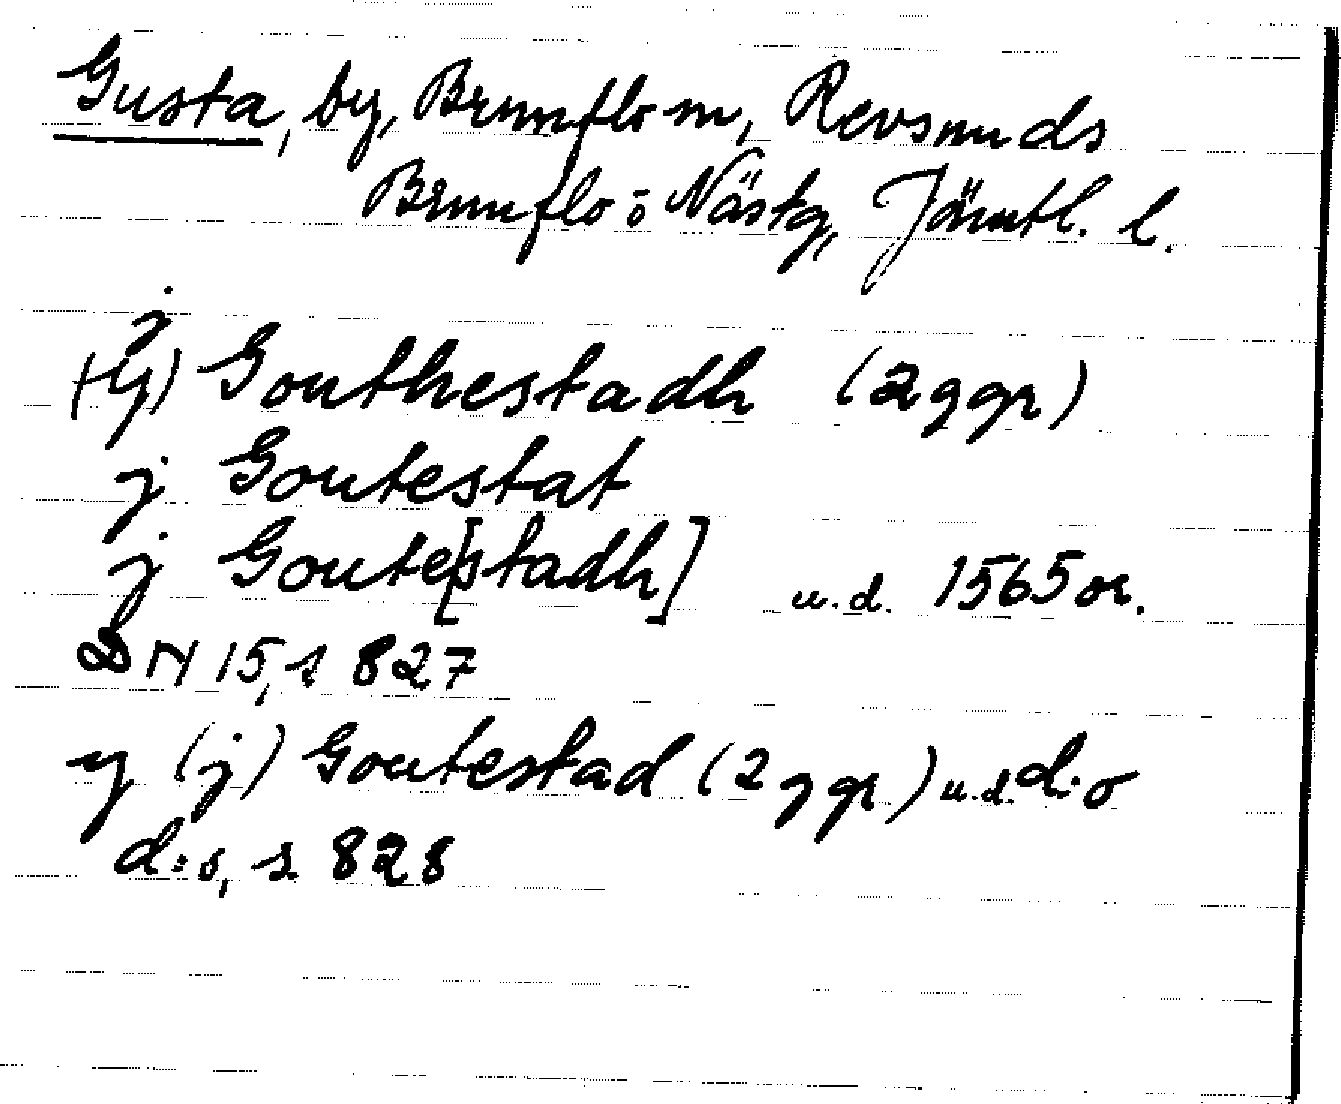 Gusta, by, Brunflo sn, Revsunds
Brunflo o Näskg, Jämtl. l.
j
(y) Gouthestadh (2 ggr)
j Goutestat
j Goute[stadh] u.d. 1565 or.
DN 15, s 827
y (j) Goutestad (2 ggr) u.d. d:o
d:o, s 828